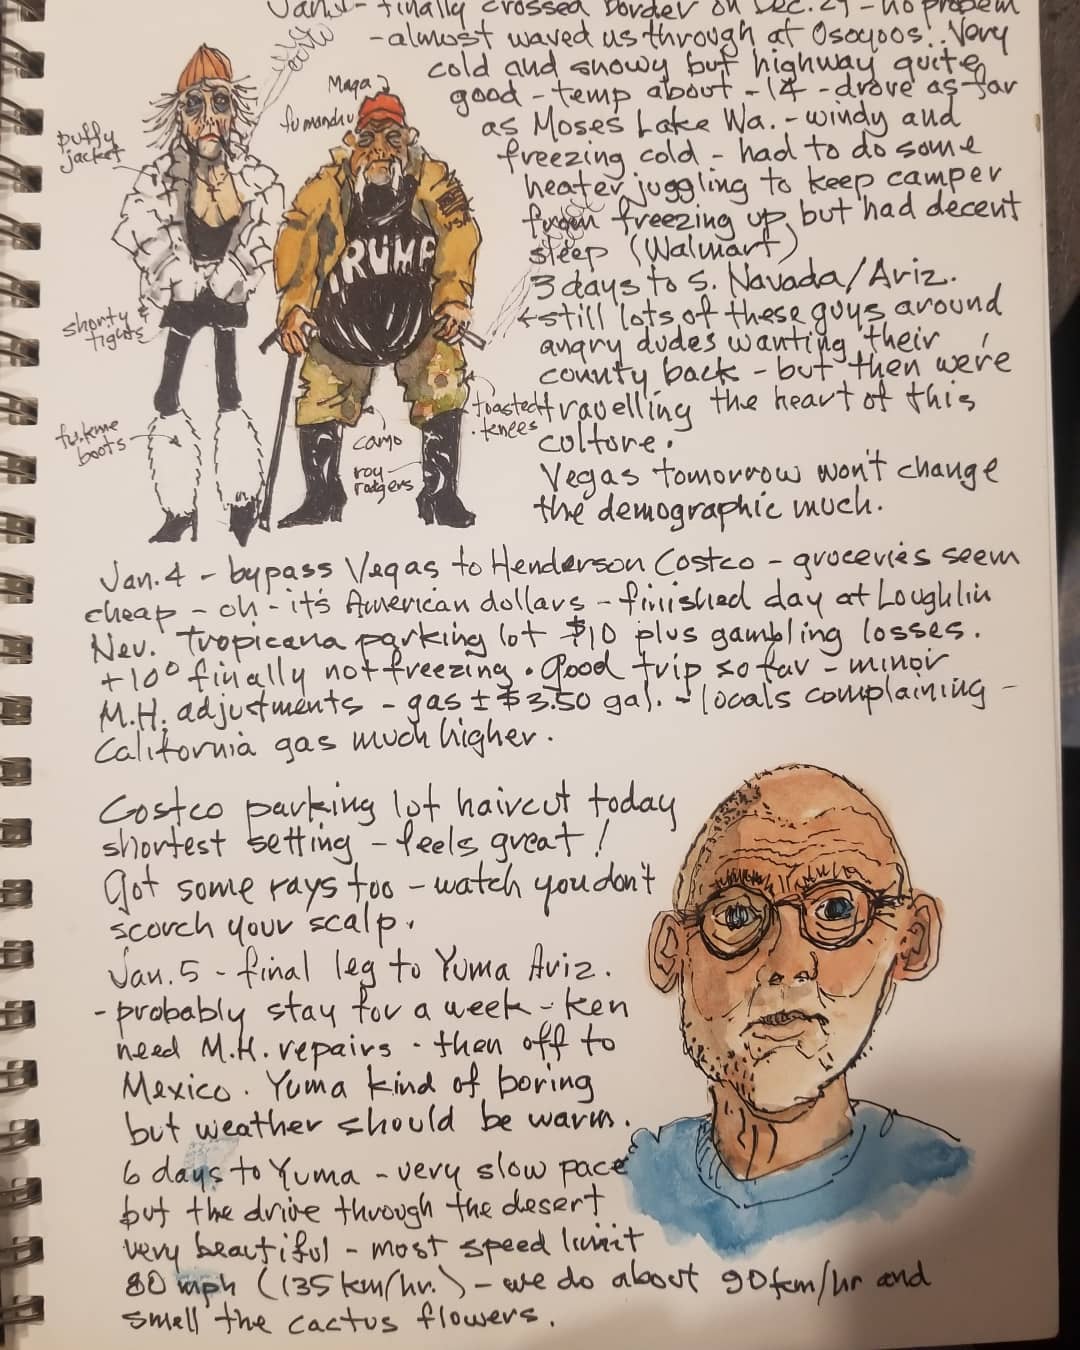 Jan.1 - finally crossed border on Dec. 29 - no probem
- almost waved us through at Osoyoos!.. Very
cold and snowy but highway quite
good - temp about -14 - drove as far
as Moses Lake Wa. - windy and
freezing cold - had to do some
heater juggling to keep camper
from freezing up, but had decent
sleep (Walmart)
3 days to S. Navada/Ariz.
←still lots of these guys around
angry dudes wanting their
county back - but then we're
travelling the heart of this
culture.
Vegas tomorrow won't change
the demographic much.
Maga
fu manchu
puffy
jacket
TRUMP
USA
shorty &
tights
toasted
knees
fukme
boots
camo
roy
rodgers
Jan. 4 - bypass Vegas to Henderson Costco - groceries seem
cheap - oh - it's American dollars - finished day at Loughlin
Nev. Tropicana parking lot $10 plus gambling losses.
+10° finally not freezing. Good trip so far - minor
M.H. adjustments - gas ± $3.50 gal. - locals complaining -
California gas much higher.
Costco parking lot haircut today
shortest setting - feels great!
Got some rays too - watch you don't
scorch your scalp.
Jan. 5 - final leg to Yuma Ariz.
- probably stay for a week - ken
need M.H. repairs - then off to
Mexico. Yuma kind of boring
but weather should be warm.
6 days to Yuma - very slow pace
but the drive through the desert
very beautiful - most speed limit
80 mph (135 km/hr.) - we do about 90 km/hr and
smell the cactus flowers.